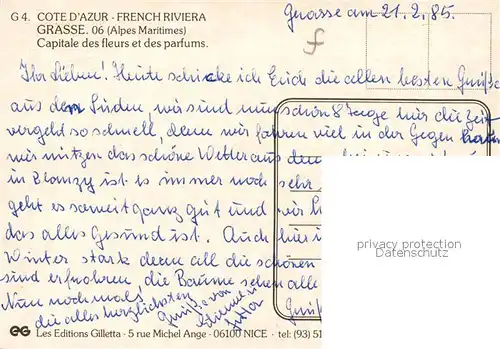 G 4. COTE D'AZUR - FRENCH RIVIERA
GRASSE. 06 (Alpes Maritimes)
Capitale des fleurs et des parfums.
Grasse am 21.2.85.
Ihr Lieben! Heute schicke ich Euch die allen besten Grüße
aus dem Süden, wir sind nun schon 8 Tage hier die Zeit
vergeht so schnell, denn wir fahren viel in der Gegend herum
wir nützen das schöne Wetter aus denn
in Blanzy ist es immer noch sehr
geht es soweit ganz gut und wir
das alles Gesund ist. Auch hier
Winter stark denn all die schönen
sind erfrohren, die Bäume sehen alle
Nun noch mals Grüße
die alles herzlichsten Grüße von
Etienne
privacy protection
Les Editions Gilletta - 5 rue Michel Ange - 06100 NICE - tel: (93) 51